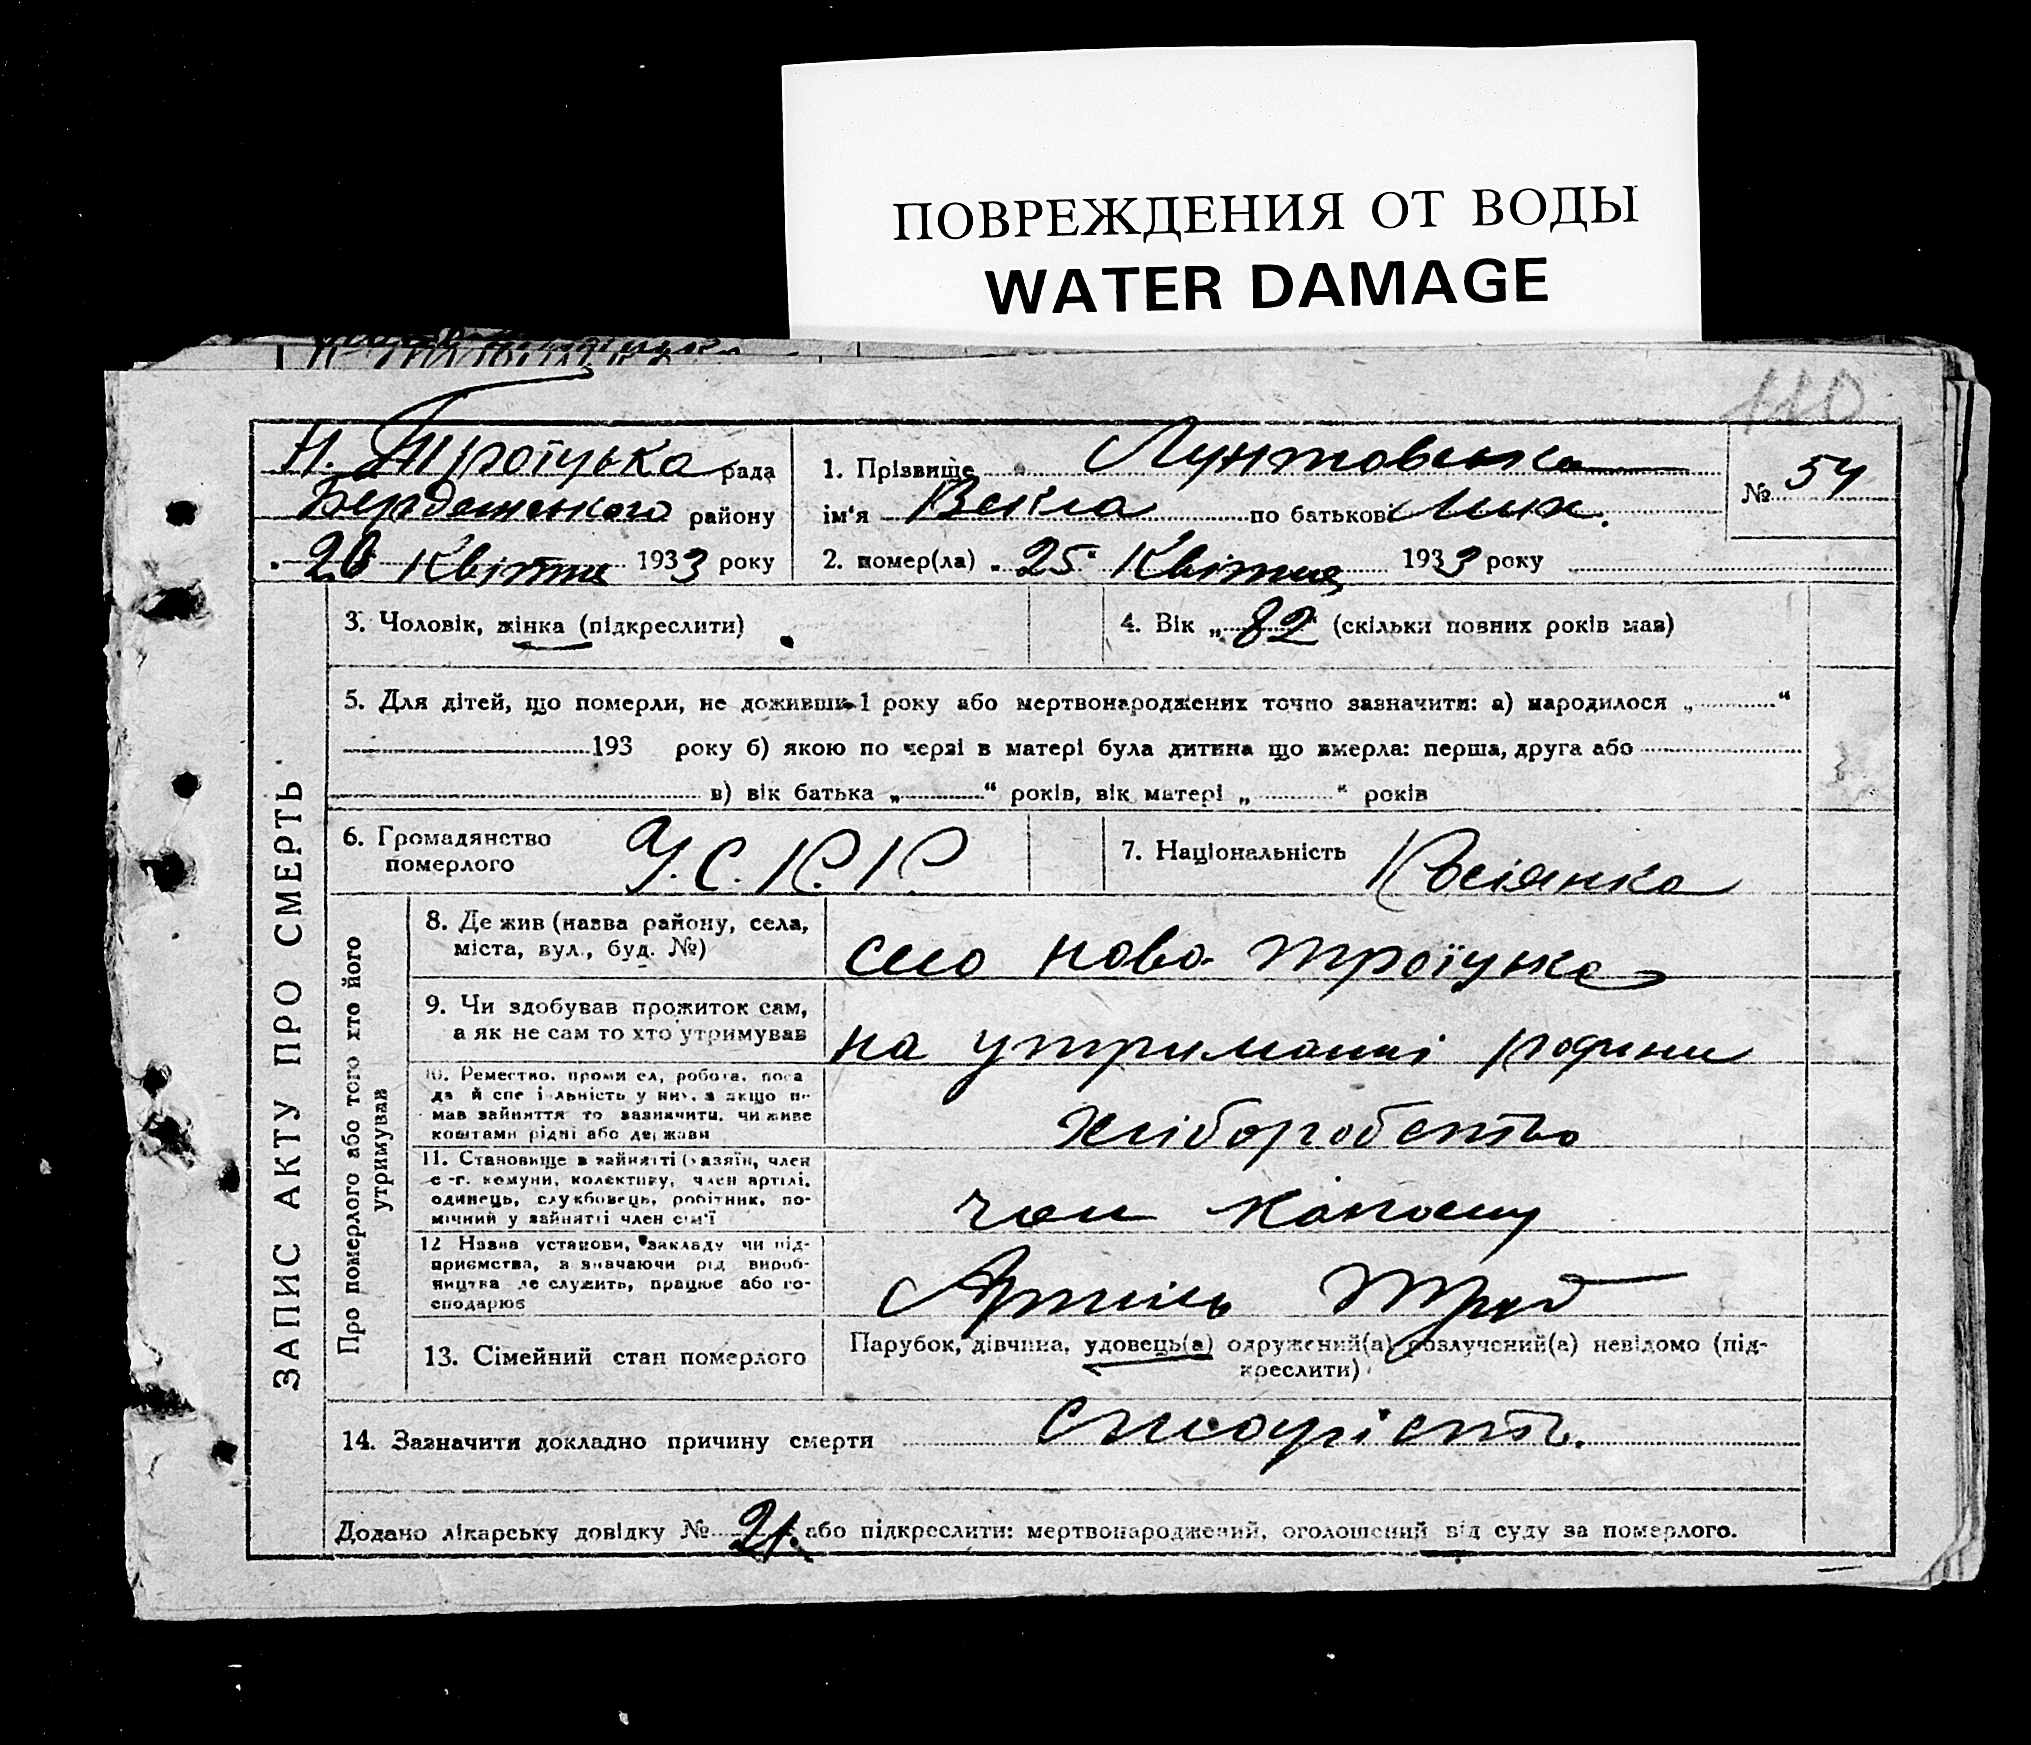 ПОВРЕЖДЕНИЯ ОТ ВОДЫ
WATER DAMAGE
110
Н. Троїцька рада
Бердянського району
26 Квітня 1933 року
1. Прізвище Лунтовська
ім'я Векла по батькові Мих.
2. помер(ла) „25" Квітня 1933 року
№ 54
ЗАПИС АКТУ ПРО СМЕРТЬ
3. Чоловік, жінка (підкреслити)
4. Вік „82" (скільки повних років мав)
5. Для дітей, що померли, не доживши 1 року або мертвонароджених точно зазначити: а) народилося „ "
193 року б) якою по черзі в матері була дитина що вмерла: перша, друга або
в) вік батька „ " років, вік матері „ " років
6. Громадянство
померлого
У.С.Р.Р.
7. Національність Росіянка
Про померлого або того хто його
утримував
8. Де жив (назва району, села,
міста, вул., буд. №)
село Ново-Троїцка
9. Чи здобував прожиток сам,
а як не сам то хто утримував
на утриманні родини
10. Ремество, промисел, робота, поса
да й спеціяльність у них, а якщо не
мав зайняття то зазначити, чи живе
коштами рідні або держави
хліборобство
11. Становище в зайнятті (хазяїн, член
с.-г. комуни, колективу, член артілі,
одинець, службовець, робітник, по-
мічний у зайнятті член сім'ї
член колгоспу
12. Назва установи, закладу чи під-
приємства, зазначаючи рід вироб-
ництва де служить, працює або го-
сподарює
Артіль Труд
13. Сімейний стан померлого
Парубок, дівчина, удовець(а) одружений(а) розлучений(а) невідомо (під-
креслити)
14. Зазначити докладно причину смерти старість.
Додано лікарську довідку № 21. або підкреслити: мертвонароджений, оголошений від суду за померлого.